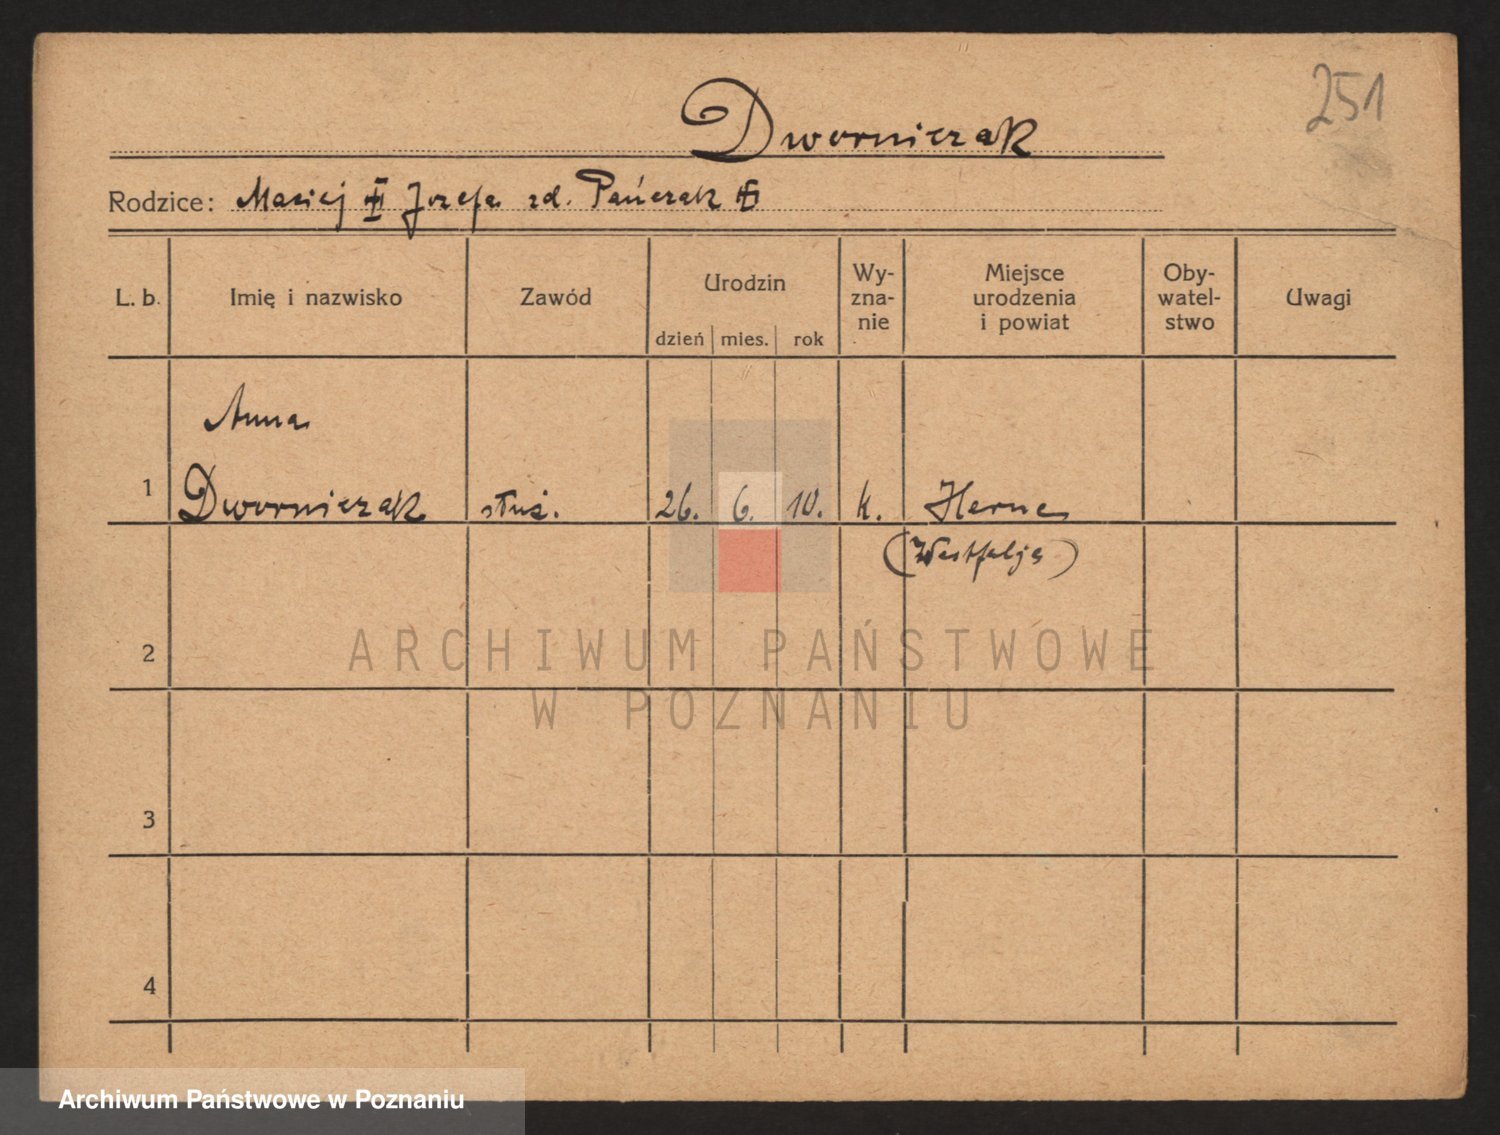 251
Dworniczak
Rodzice: Maciej Józefa zd. Pańczak
L. b. Imię i nazwisko Zawód Urodzin dzień mies. rok Wy-zna-nie Miejsce urodzenia i powiat Oby-watel-stwo Uwagi
Anna
1 Dworniczak służ. 26. 6. 10. k. Herne
(Westfalja)
2
ARCHIWUM PAŃSTWOWE
W POZNANIU
3
4
Archiwum Państwowe w Poznaniu